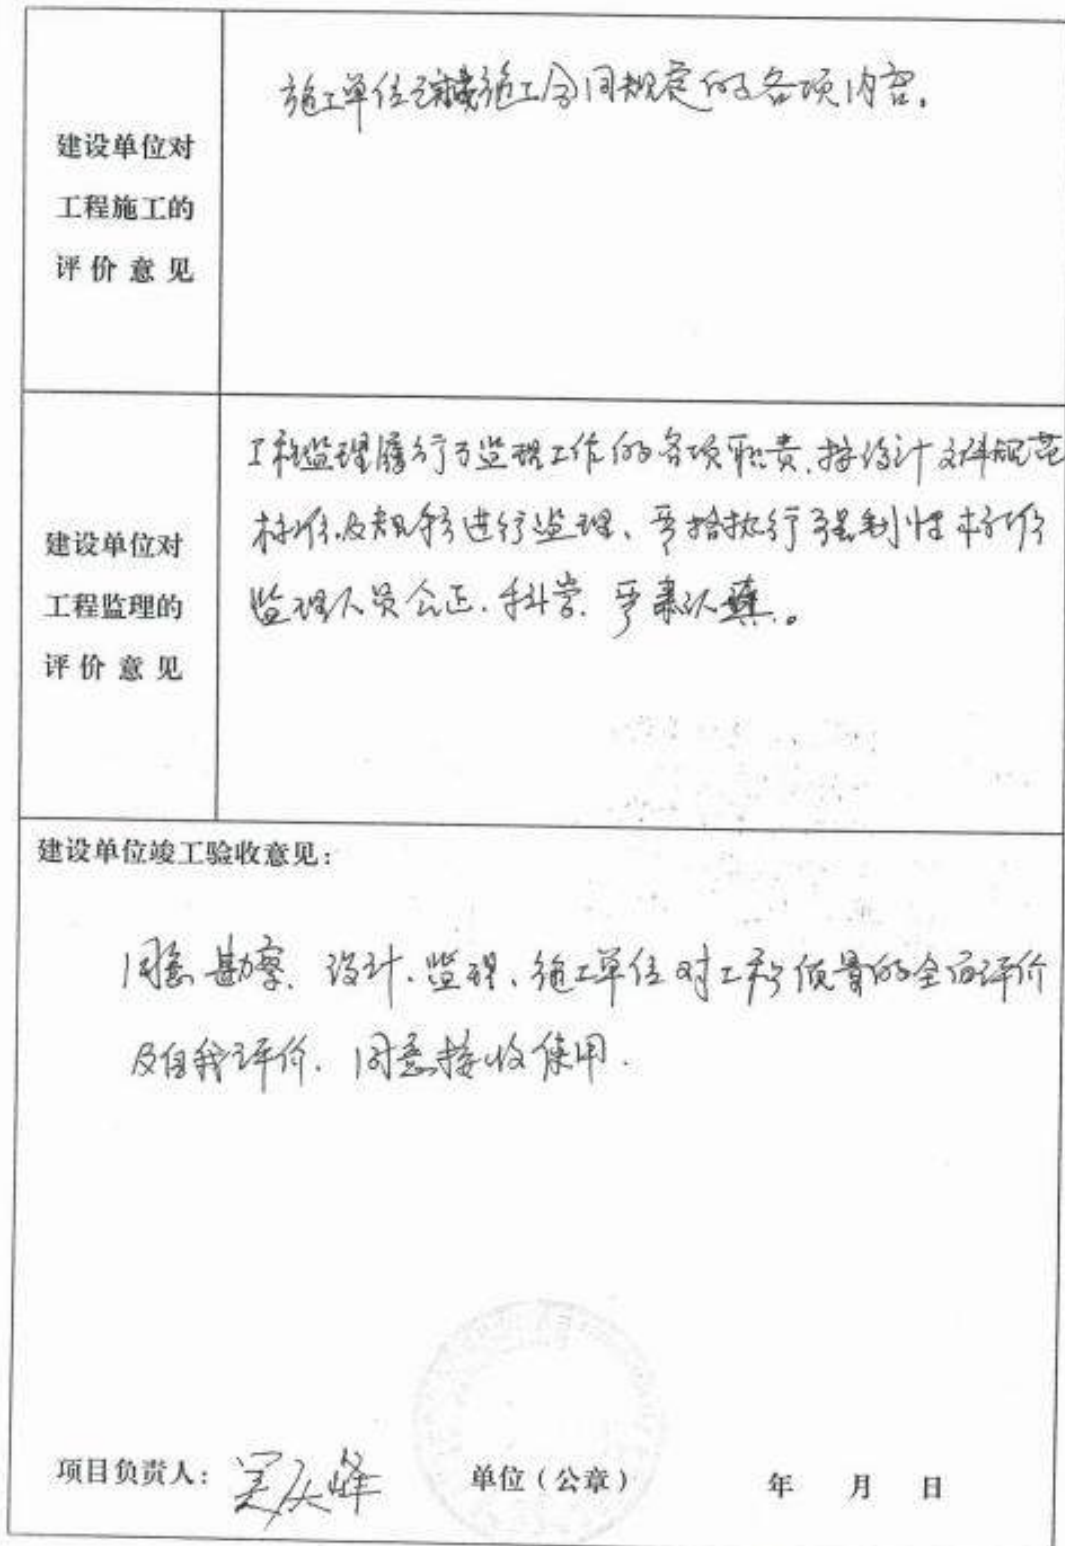 建设单位对
工程施工的
评价意见
施工单位已完成施工合同规定的各项内容。
建设单位对
工程监理的
评价意见
工程监理履行了监理工作的各项职责、按设计文件规范
标准及规程进行监理、严格执行强制性标准
监理人员公正、科学、严肃认真。
建设单位竣工验收意见：
同意勘察、设计、监理、施工单位对工程质量的全面评价
及自我评价、同意接收使用.
项目负责人：
单位（公章）
年 月 日